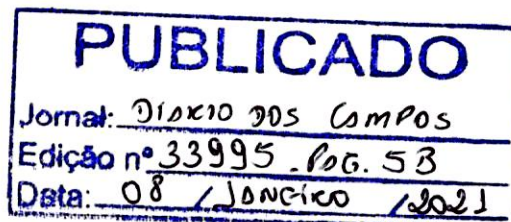 PUBLICADO
Jornal: DIARIO DOS CAMPOS
Edição nº 33995 PAG. 5B
Data: 08 / JANEIRO / 2021